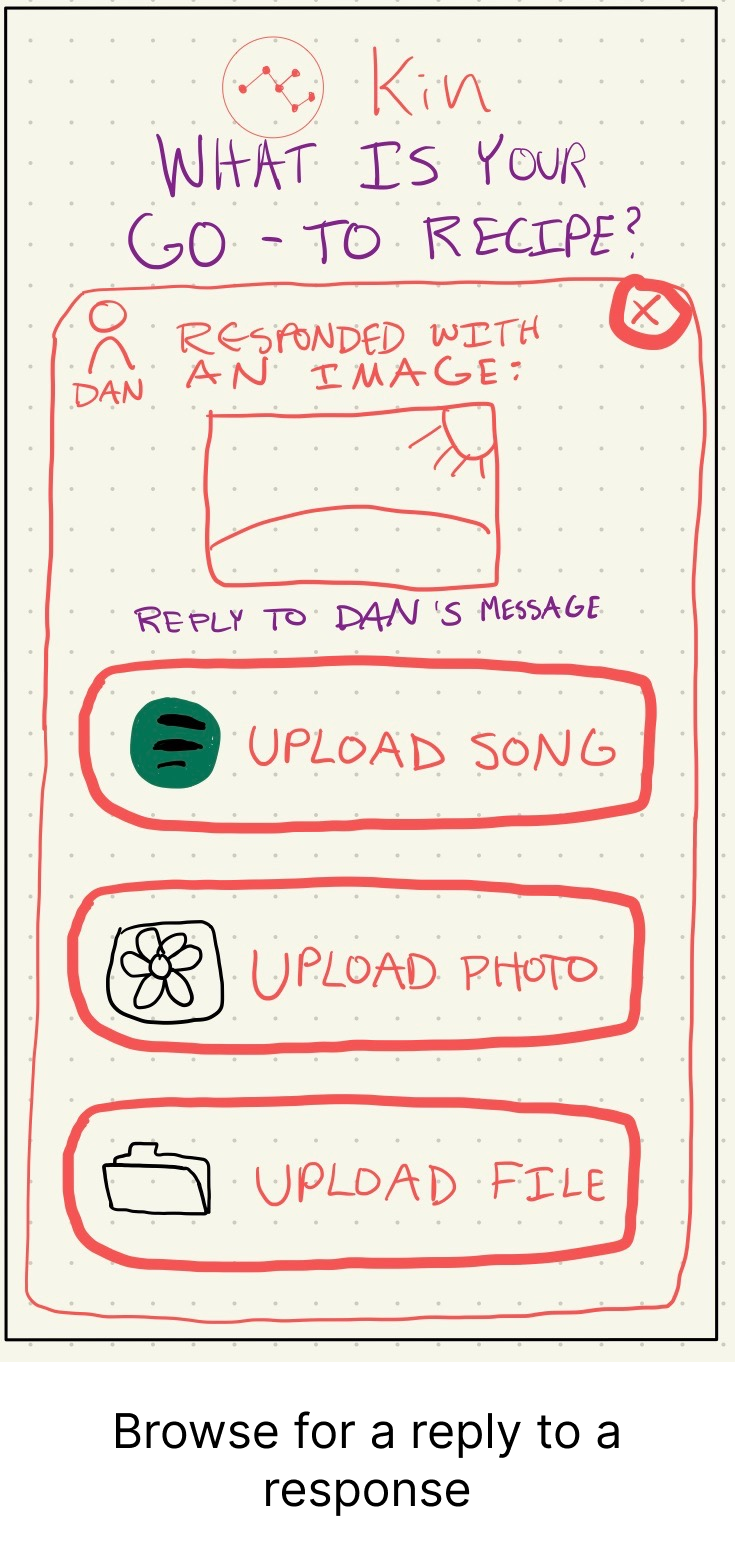 Kin
WHAT IS YOUR
GO - TO RECIPE?
RESPONDED WITH
AN IMAGE:
DAN
REPLY TO DAN'S MESSAGE
UPLOAD SONG
UPLOAD PHOTO
UPLOAD FILE
Browse for a reply to a
response